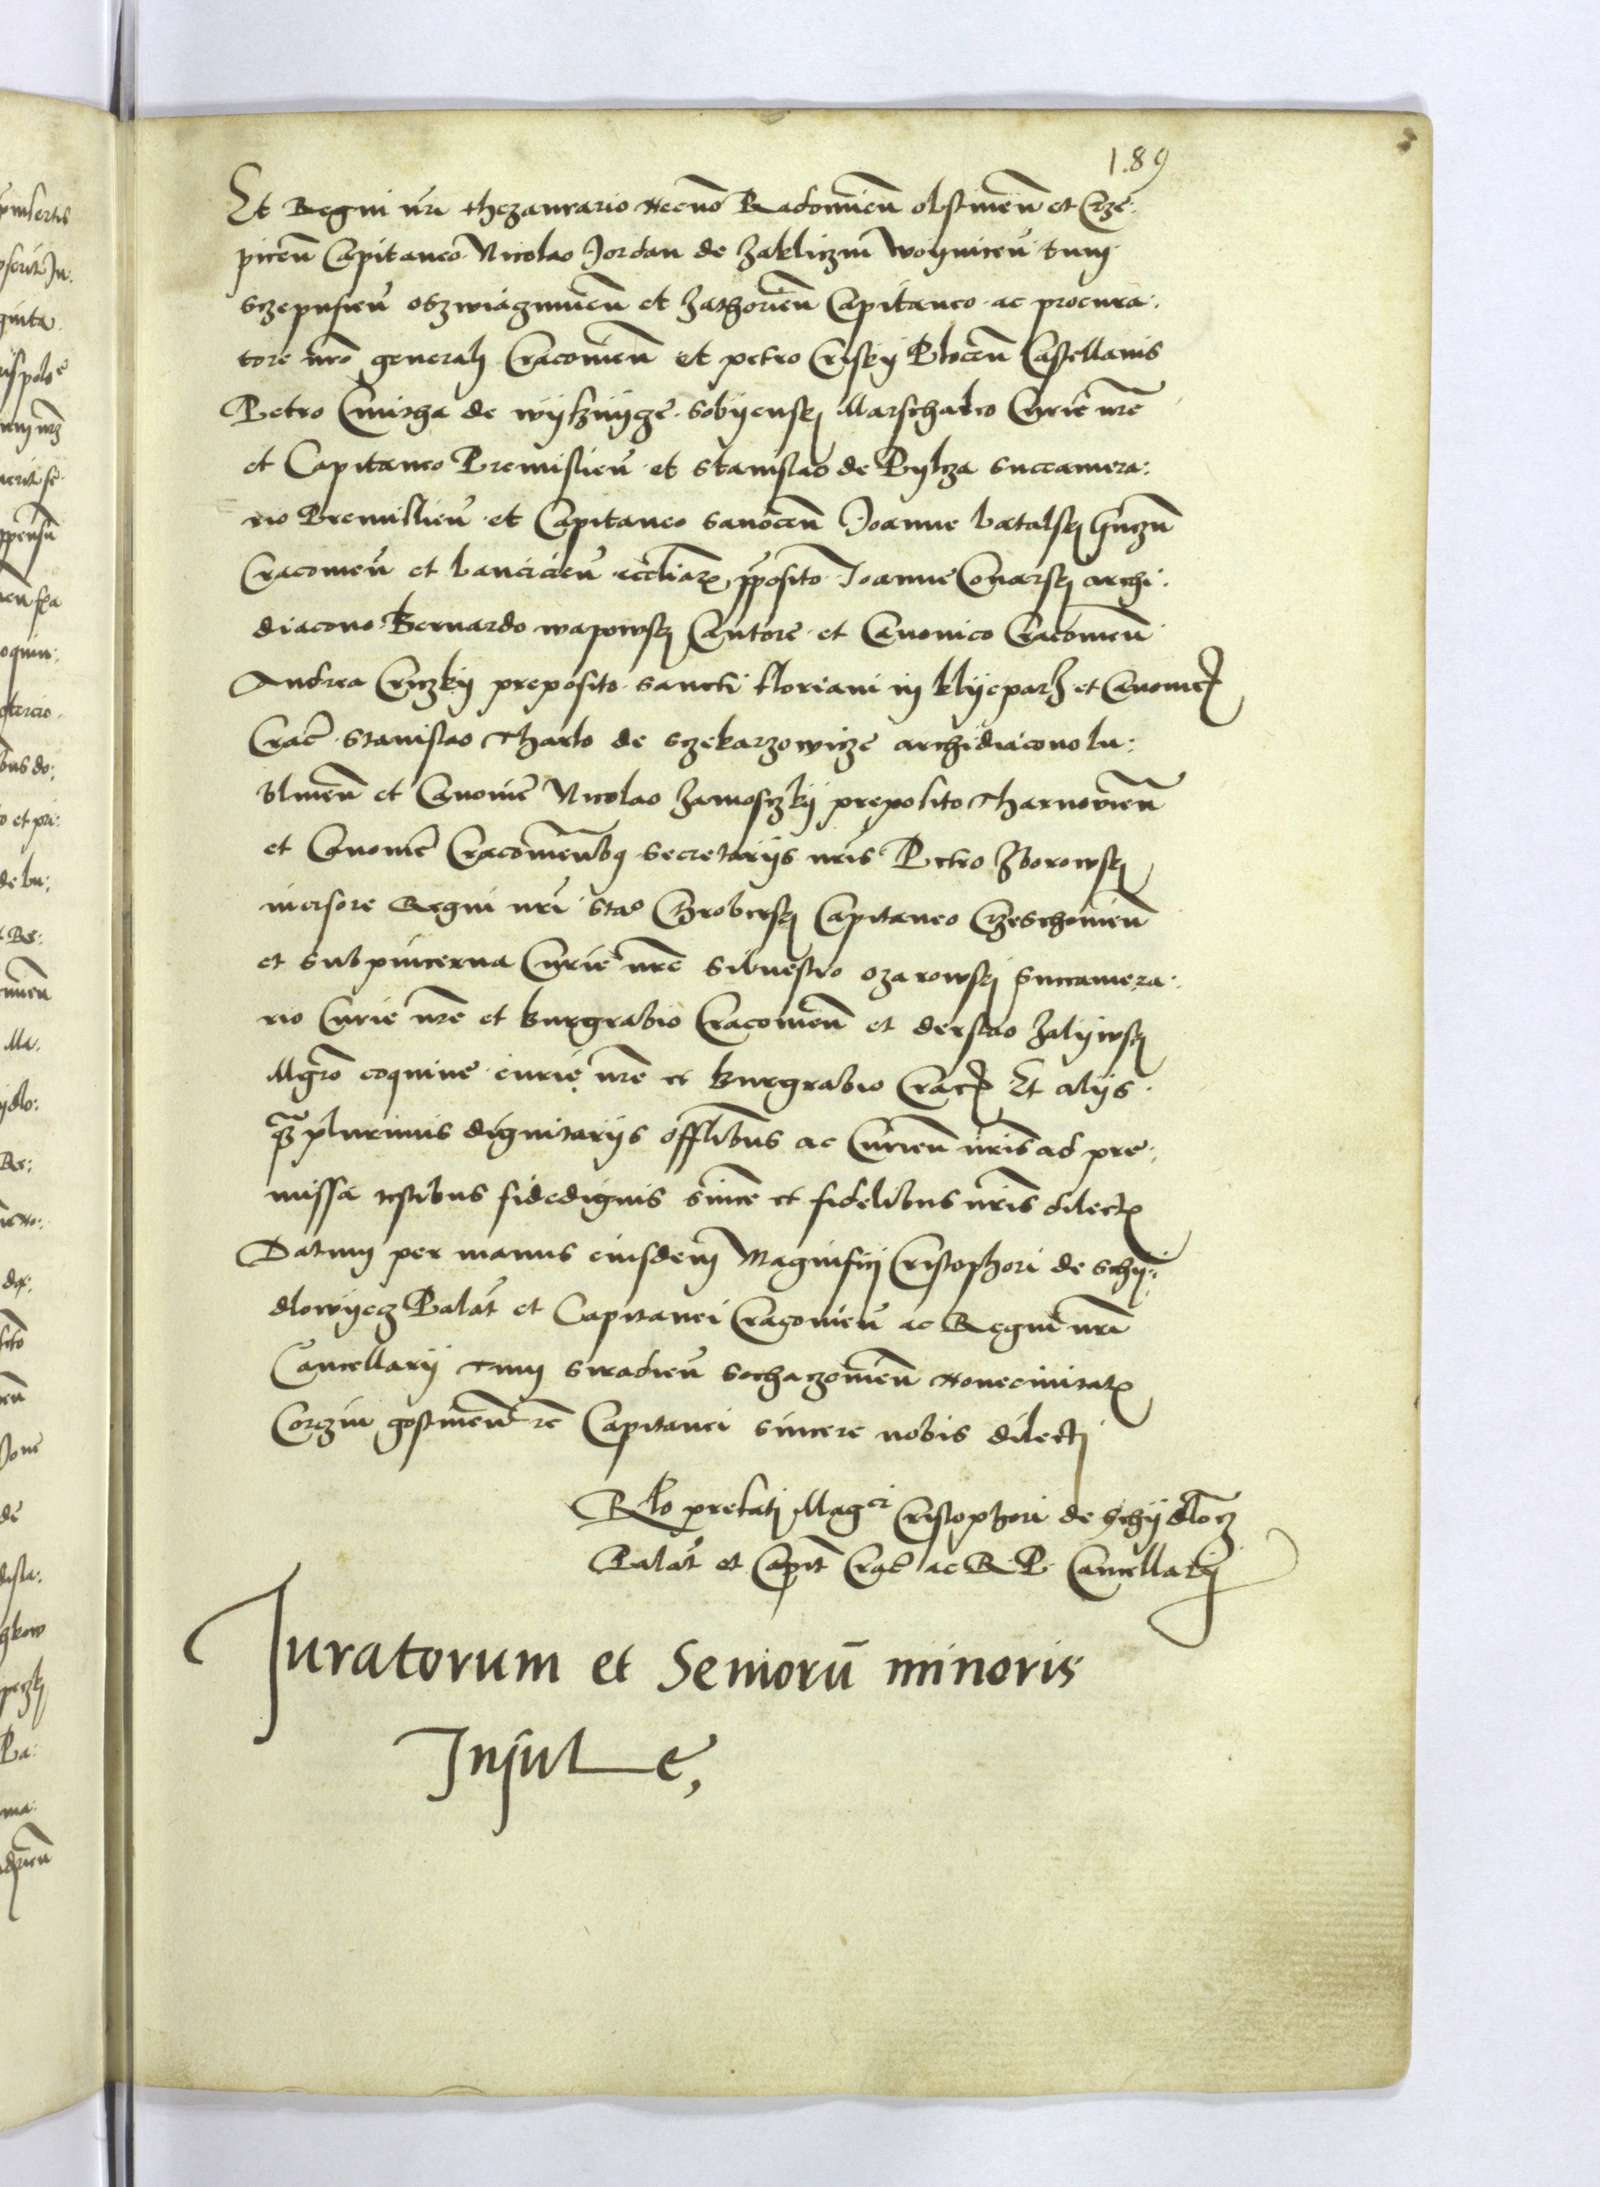 189
Et Regni nri thezaurario Necno Radomien olstinen et Crze:
picen Capitaneo Nicolao Jordan de Zakliczin Woynicen tum
Sczepusien oszwiaczimen et Zathorien Capitaneo ac procura:
tore nro generali Cracouien et petro Crisky Plocen Castellanis
Petro Cmitha de wysznycze Sobyensky Marschalco Curie nre
et Capitaneo Premislien et Stanislao de Pylcza Succamera:
rio Premislien et Capitaneo Sanocen Joanne Latalsky
Cracouien et Lancicien eccliar pposito Joanne Conarsky archi:
diacono Bernardo wapowsky Cantore et Canonico Cracouien
Andrea Criczky preposito Sancti floriani in klyeparz et Canonic
Crac Stanislao Tharlo de Sczekarzowicze archidiacono lu:
blinen et Canonic Nicolao Zamosczky preposito Tharnouien
et Canonic Cracouienbq Secretarys nris Petro Zborowsky
incisore Regni nri Stao Chroberski Capitaneo Czeschouien
et Subpincerna Curie nre Siluestro ozarowsky Succamera:
rio Curie nre et burgrabio Cracouien et derslao Zalywsky
Mgro coquine curie nre et burgrabio Crac Et alys
q plurimis dignitarys offlibus ac Curien nris ad pre:
missa testibus fidedignis Since et fidelibus nris dilect
Datum per manus eiusdem Magnifici Cristophori de Schy:
dlowyecz Palat et Capitanei Cracouien ac Regni nri
Cancellary tum Siradien Sochaczouien Nouecivitat
Corczin gostinen re Capitanei Sincere nobis dilecti
Rlo prefati Magci Cristophori de Schydlocz
Palat et Capit Crac ac R P Cancellary
Juratorum et Seniorū minoris
Insule,